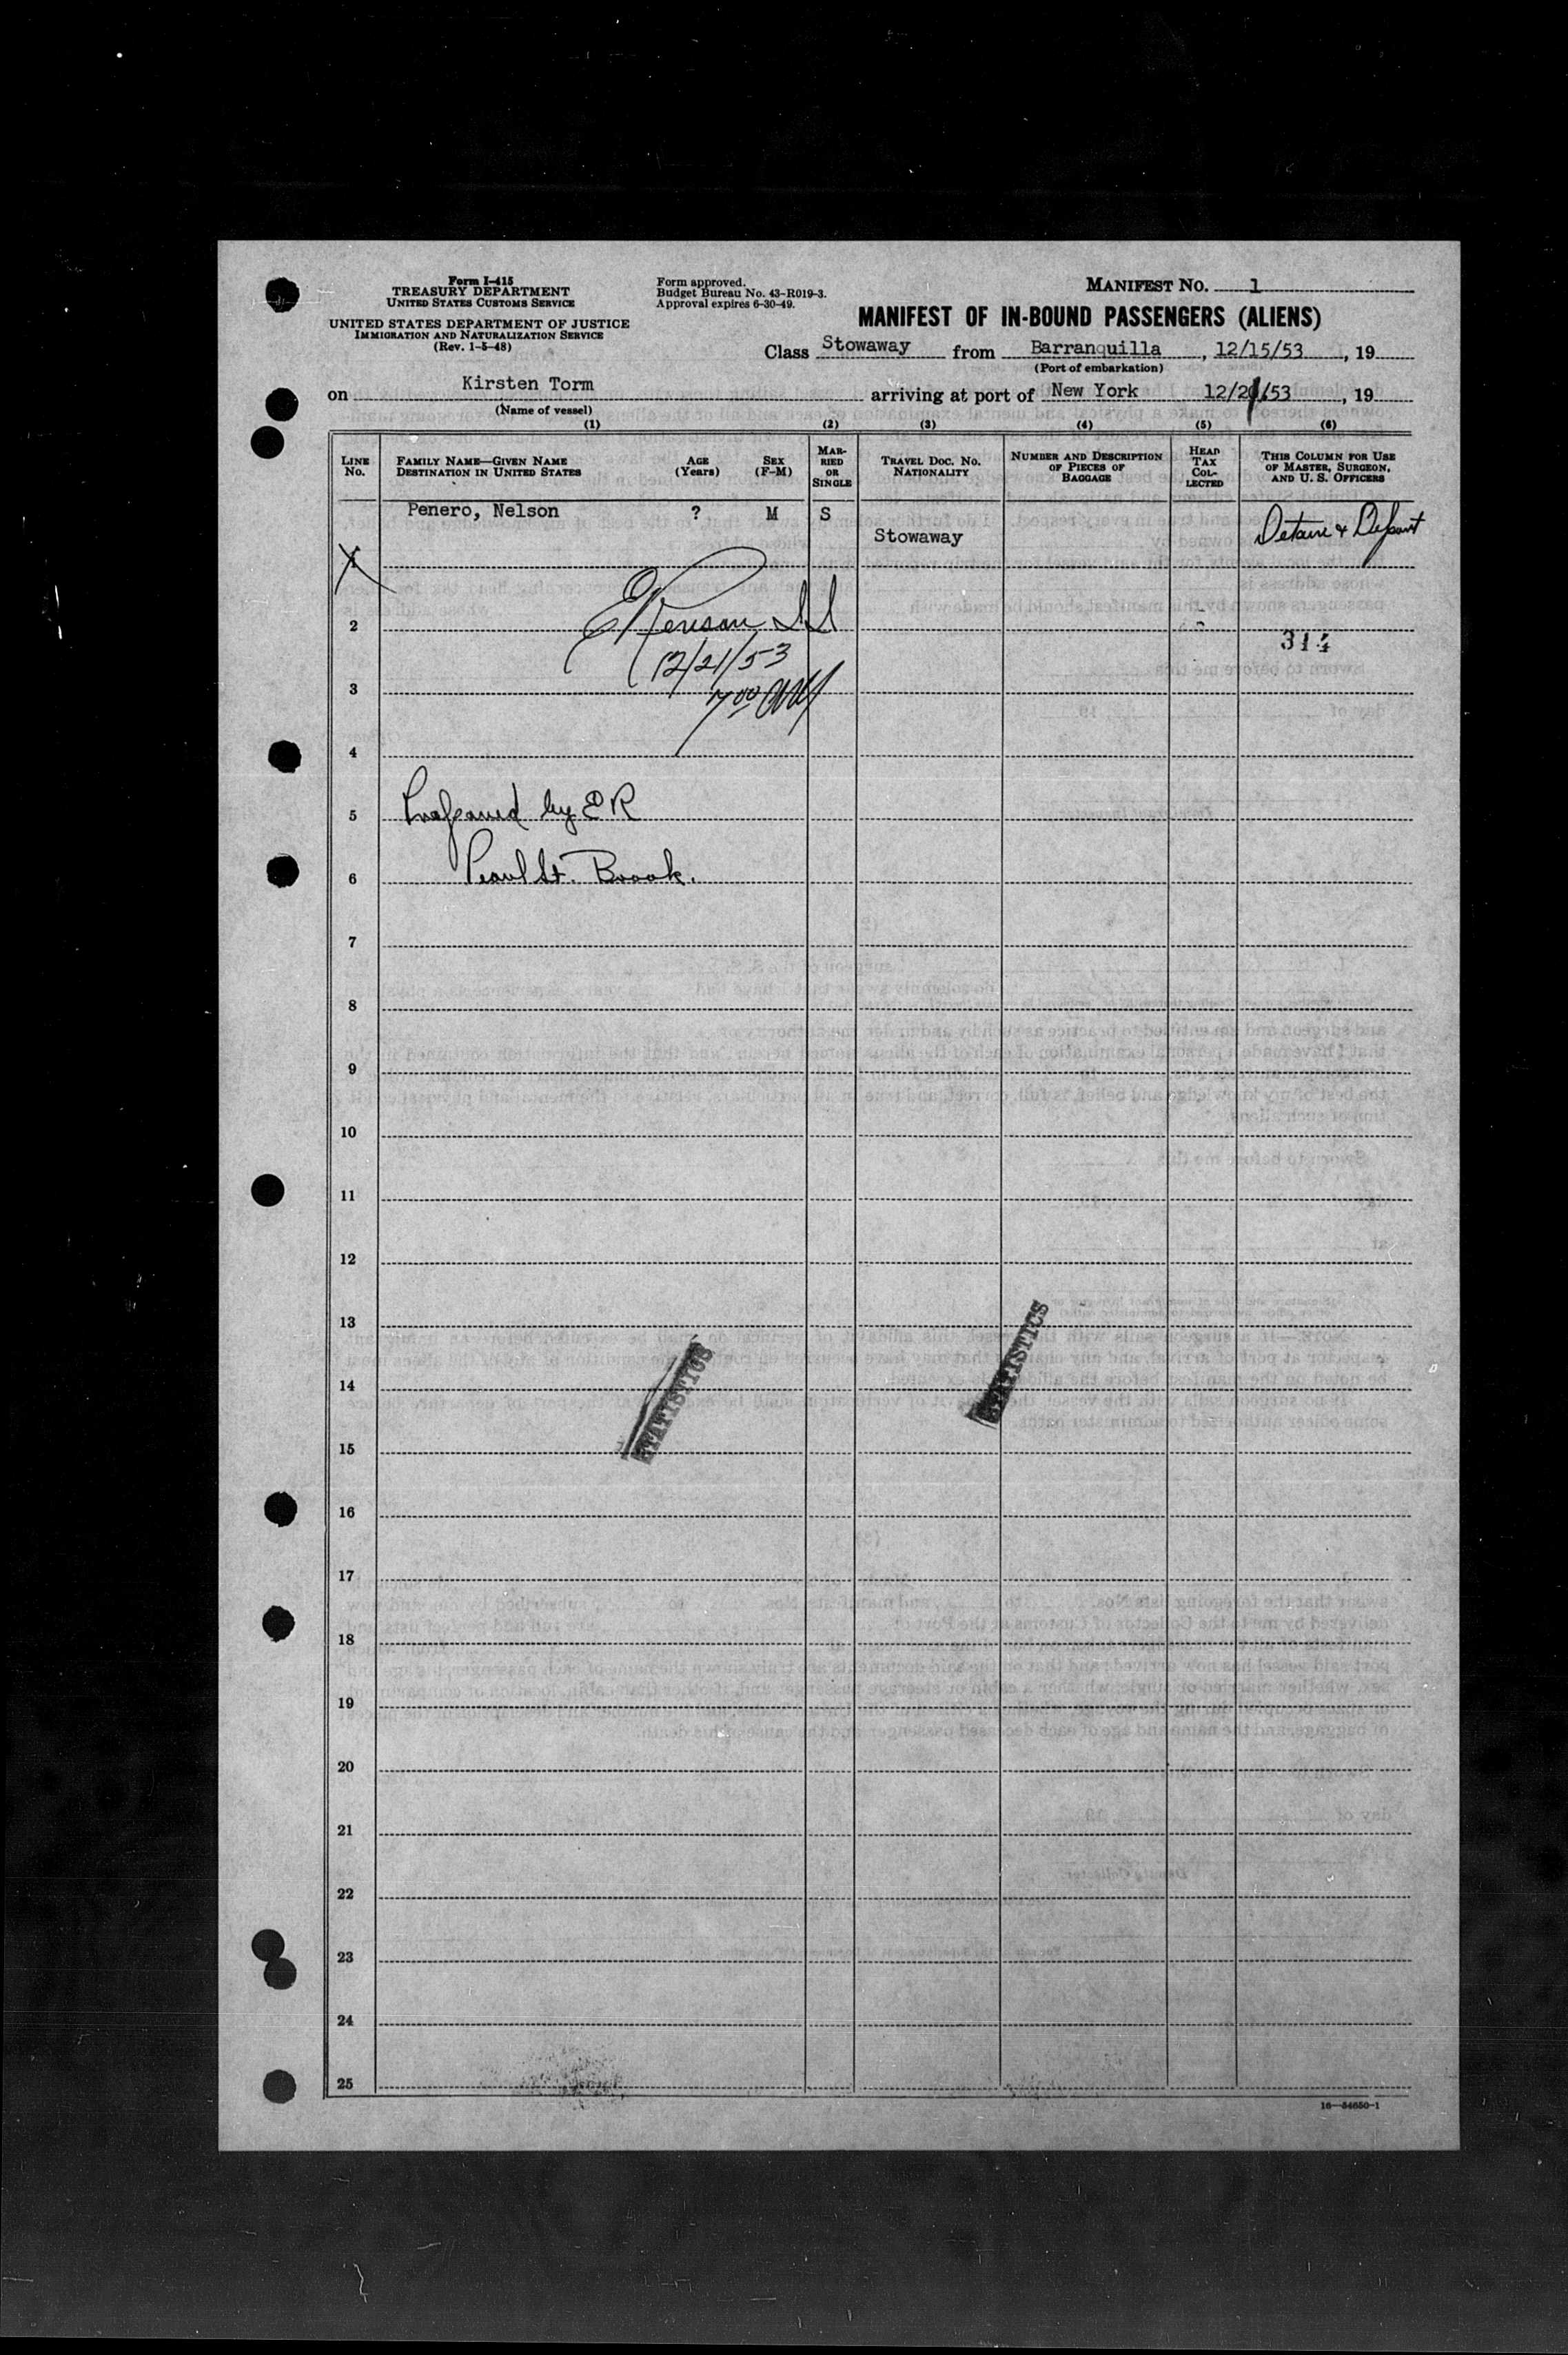 Form I-415
TREASURY DEPARTMENT
UNITED STATES CUSTOMS SERVICE
UNITED STATES DEPARTMENT OF JUSTICE
IMMIGRATION AND NATURALIZATION SERVICE
(Rev. 1-5-48)
Form approved.
Budget Bureau No. 43-R019-3.
Approval expires 6-30-49.
MANIFEST No. 1
MANIFEST OF IN-BOUND PASSENGERS (ALIENS)
Class Stowaway from Barranquilla, 12/15/53, 19
(Port of embarkation)
on Kirsten Torm arriving at port of New York 12/21/53, 19
(Name of vessel)
(1) (2) (3) (4) (5) (6)
LINE No.
FAMILY NAME—GIVEN NAME
DESTINATION IN UNITED STATES
AGE (Years)
SEX (F-M)
MARRIED OR SINGLE
TRAVEL DOC. NO.
NATIONALITY
NUMBER AND DESCRIPTION OF PIECES OF BAGGAGE
HEAD TAX COLLECTED
THIS COLUMN FOR USE OF MASTER, SURGEON, AND U. S. OFFICERS
Penero, Nelson ? M S
Stowaway
Detain & Deport
1
2
314
12/21/53
3
7 00 AM
4
5 Prepared by ER
6 Pearl St. Brook.
7
8
9
10
11
12
13
14
STATISTICS
STATISTICS
15
16
17
18
19
20
21
22
23
24
25
16—54650-1